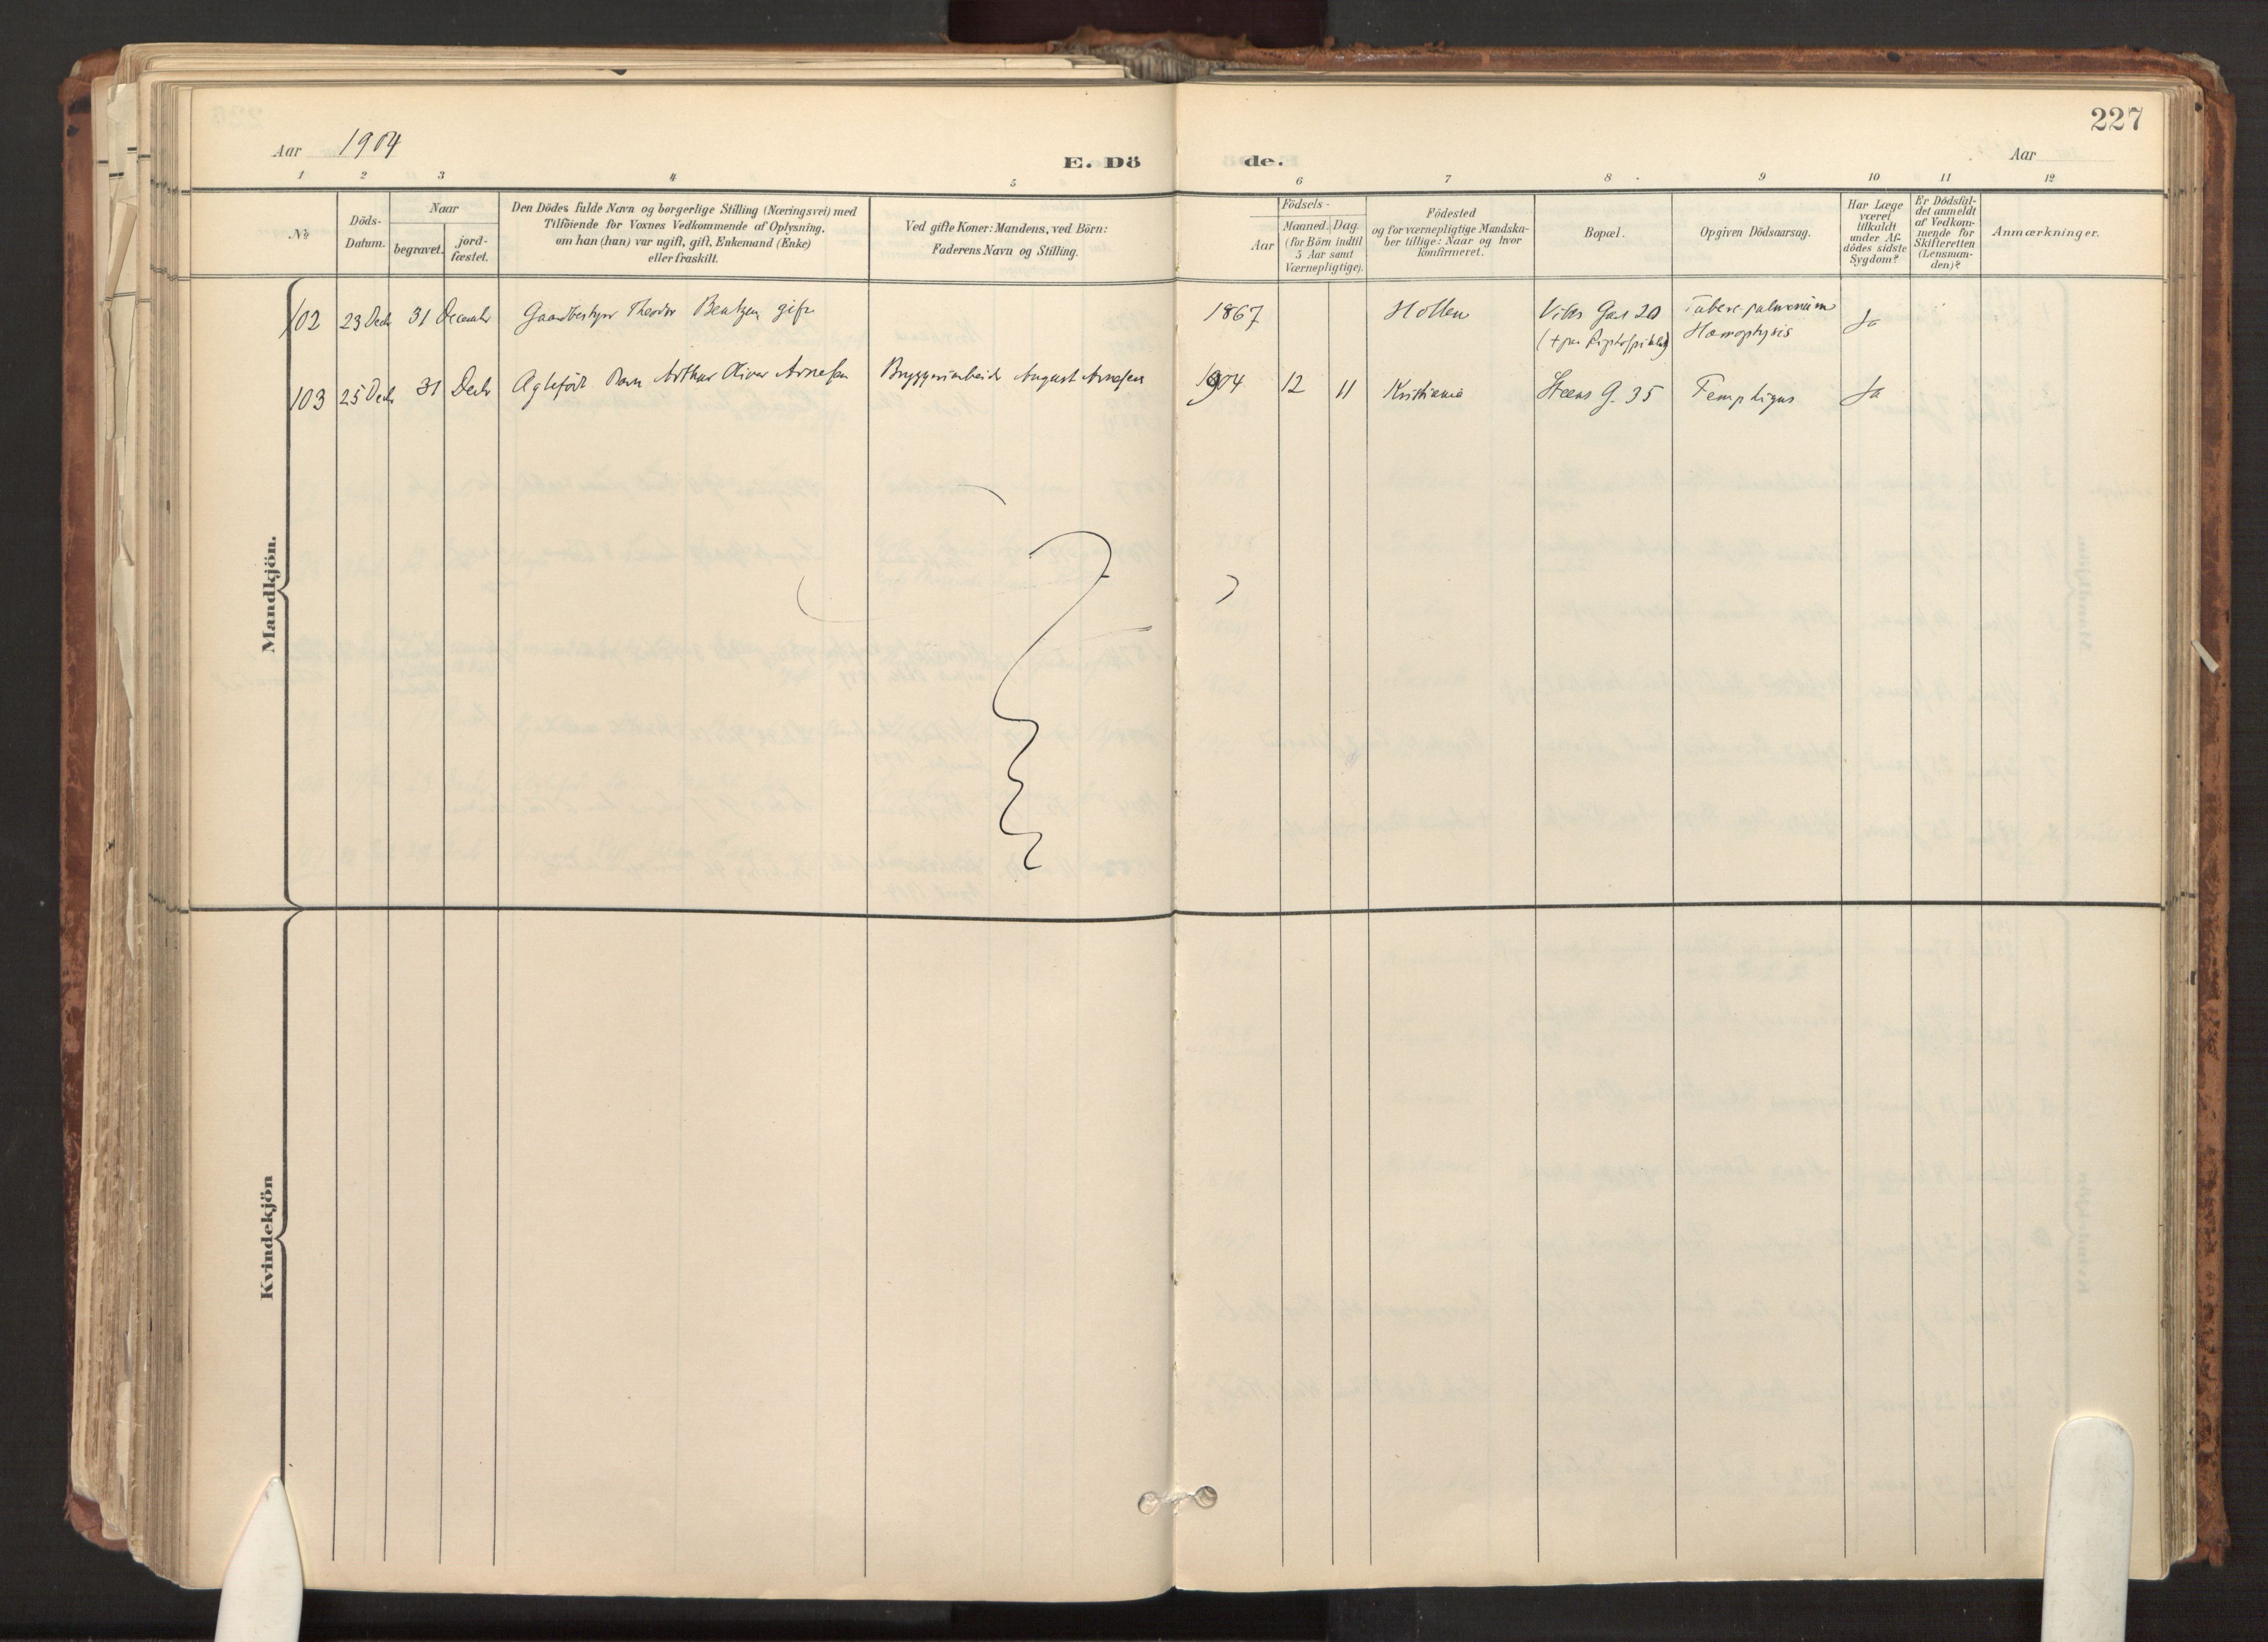 227
Aar 1904
E. Dö de.
Aar
1 2 3 4 5 6 7 8 9 10 11 12
№
Döds-
Datum.
Naar
begravet.
jord-
fæstet.
Den Dödes fulde Navn og borgerlige Stilling (Næringsvei) med
Tilföiende for Voxnes Vedkommende af Oplysning,
om han (hun) var ugift, gift, Enkemand (Enke)
eller fraskilt.
Ved gifte Koner: Mandens, ved Börn:
Faderens Navn og Stilling.
Födsels-
Aar
Maaned. Dag.
(for Börn indtil
5 Aar samt
Værnepligtige).
Födested
og for værnepligtige Mandska-
ber tillige: Naar og hvor
konfirmeret.
Bopæl.
Opgiven Dödsaarsag.
Har Læge
været
tilkaldt
under Af-
dödes sidste
Sygdom?
Er Dödsfal-
det anmeldt
af Vedkom-
mende for
Skifteretten
(Lensman-
den)?
Anmærkninger.
Mandkjön.
102 23 Decbr 31 December Gaardbestyrer Theodor Bentzen gift 1867 Holten Vibes Gad 20 Tuberc. pulmonum Ja
Hæmophysis
103 25 Decbr 31 Decbr Agtefödt Barn Arthur Oliver Arnesen Bryggeriarbeider August Arnesen 1904 12 11 Kristiania Steens G. 35 Pemphigus Ja
Kvindekjön